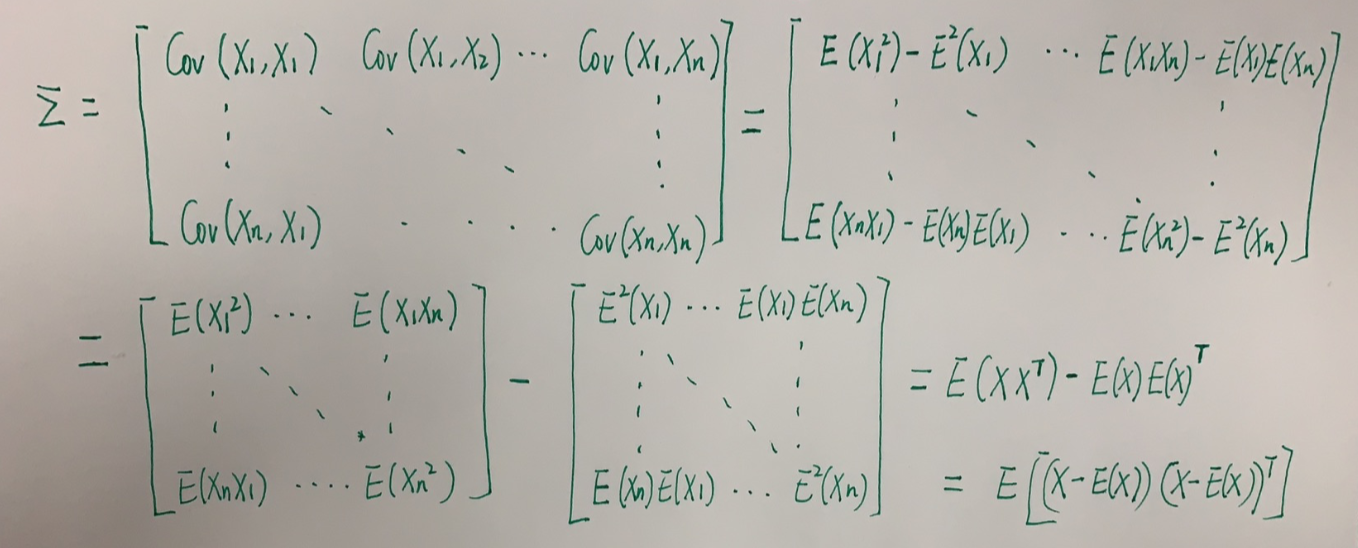 Σ = [ Cov(X₁,X₁) Cov(X₁,X₂) ⋯ Cov(X₁,Xn) ⋮ ⋱ ⋮ Cov(Xn,X₁) ⋯ Cov(Xn,Xn) ] = [ E(X₁²)-E²(X₁) ⋯ E(X₁Xn)-E(X₁)E(Xn) ⋮ ⋱ ⋮ E(XnX₁)-E(Xn)E(X₁) ⋯ E(Xn²)-E²(Xn) ]
= [ E(X₁²) ⋯ E(X₁Xn) ⋮ ⋱ ⋮ E(XnX₁) ⋯ E(Xn²) ] - [ E²(X₁) ⋯ E(X₁)E(Xn) ⋮ ⋱ ⋮ E(Xn)E(X₁) ⋯ E²(Xn) ] = E(XXᵀ)-E(X)E(X)ᵀ
= E[(X-E(X))(X-E(X))ᵀ]